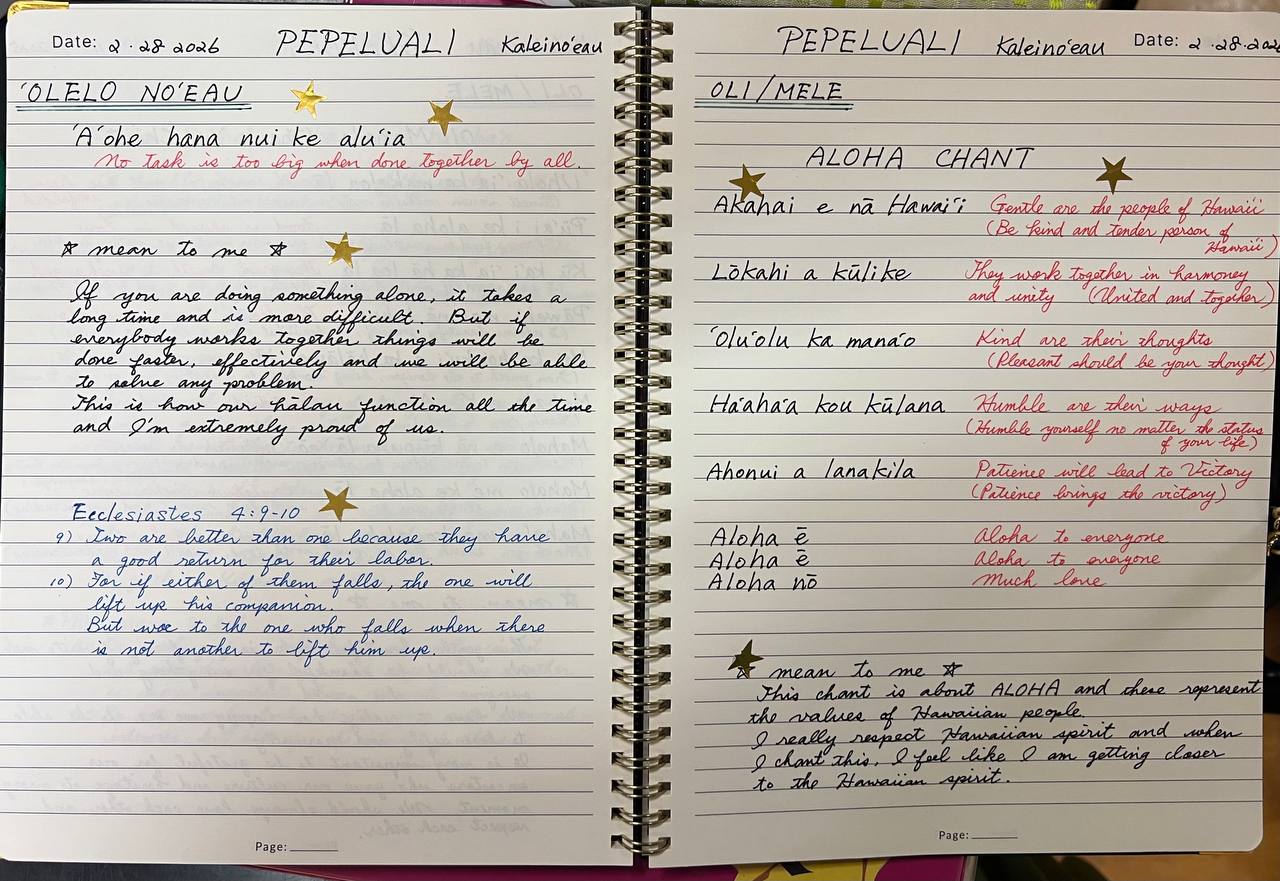 Date: 2.28 2026 PEPELUALI Kaleino'eau
'OLELO NO'EAU
'A'ohe hana nui ke alu'ia
No task is too big when done together by all.
☆ mean to me ☆
If you are doing something alone, it takes a
long time and is more difficult. But if
everybody works together things will be
done faster, effectively and we will be able
to solve any problem.
This is how our hālau function all the time
and I'm extremely proud of us.
Ecclesiastes 4:9-10
9) Two are better than one because they have
a good return for their labor.
10) For if either of them falls, the one will
lift up his companion.
But woe to the one who falls when there
is not another to lift him up.
Page:
PEPELUALI Kaleino'eau Date: 2.28.2026
OLI/MELE
ALOHA CHANT
Akahai e nā Hawai'i Gentle are the people of Hawaii
(Be kind and tender person of
Hawaii)
Lōkahi a kūlike They work together in harmoney
and unity (United and together)
'Olu'olu ka mana'o Kind are their thoughts
(Pleasant should be your thought)
Ha'aha'a kou kūlana Humble are their ways
(Humble yourself no matter the status
of your life)
Ahonui a lanakila Patience will lead to Victory
(Patience brings the victory)
Aloha ē Aloha to everyone
Aloha ē Aloha to everyone
Aloha nō Much love
☆ mean to me ☆
This chant is about ALOHA and these represent
the values of Hawaiian people.
I really respect Hawaiian spirit and when
I chant this, I feel like I am getting closer
to the Hawaiian spirit.
Page: